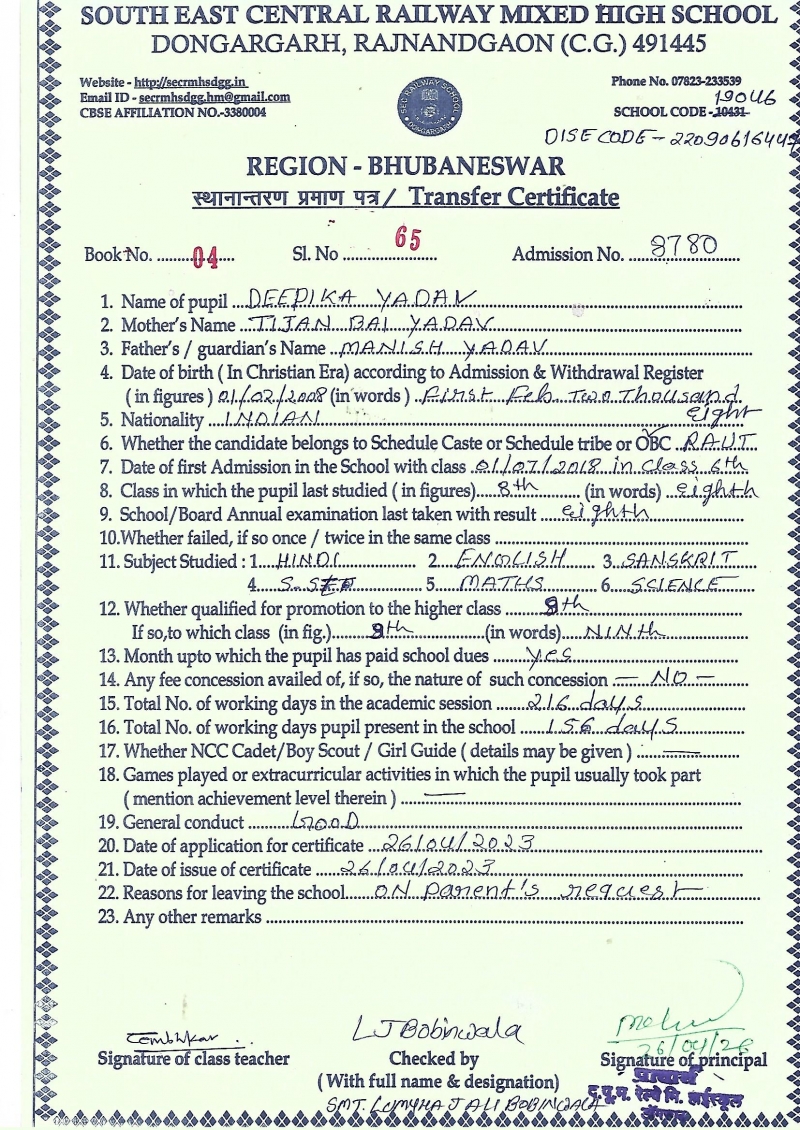 SOUTH EAST CENTRAL RAILWAY MIXED HIGH SCHOOL
DONGARGARH, RAJNANDGAON (C.G.) 491445
Website - http://secrmhsdgg.in
Phone No. 07823-233539
Email ID - secrmhsdgg.hm@gmail.com
19046
CBSE AFFILIATION NO.-3380004
SCHOOL CODE -10431-
SEC RAILWAY SCHOOL
DONGARGARH
DISE CODE - 2209061644
REGION - BHUBANESWAR
स्थानान्तरण प्रमाण पत्र / Transfer Certificate
Book No. 04 Sl. No 65 Admission No. 8780
1. Name of pupil DEEPIKA YADAV
2. Mother's Name TIJAN BAI YADAV
3. Father's / guardian's Name MANISH YADAV
4. Date of birth ( In Christian Era) according to Admission & Withdrawal Register
( in figures ) 01/02/2008 (in words ) First Feb Two Thousand
eight
5. Nationality INDIAN
6. Whether the candidate belongs to Schedule Caste or Schedule tribe or OBC RAUT
7. Date of first Admission in the School with class 01/07/2018 in class 6th
8. Class in which the pupil last studied ( in figures) 8th (in words) eighth
9. School/Board Annual examination last taken with result eighth
10.Whether failed, if so once / twice in the same class
11. Subject Studied : 1 HINDI 2 ENGLISH 3 SANSKRIT
4 5 MATHS 6 SCIENCE
12. Whether qualified for promotion to the higher class 9th
If so,to which class (in fig.) 9th (in words) NINth
13. Month upto which the pupil has paid school dues yes
14. Any fee concession availed of, if so, the nature of such concession — NO —
15. Total No. of working days in the academic session 216 days
16. Total No. of working days pupil present in the school 156 days
17. Whether NCC Cadet/Boy Scout / Girl Guide ( details may be given ) —
18. Games played or extracurricular activities in which the pupil usually took part
( mention achievement level therein ) —
19. General conduct GOOD
20. Date of application for certificate 26/04/2023
21. Date of issue of certificate 26/04/2023
22. Reasons for leaving the school ON parent's request
23. Any other remarks
LJBobinwala
26/04/23
Signature of class teacher
Checked by
Signature of principal
( With full name & designation)
प्राचार्य
SMT. ALI BOBINWALA
द.पू.म. रेल्वे मि. हाईस्कूल